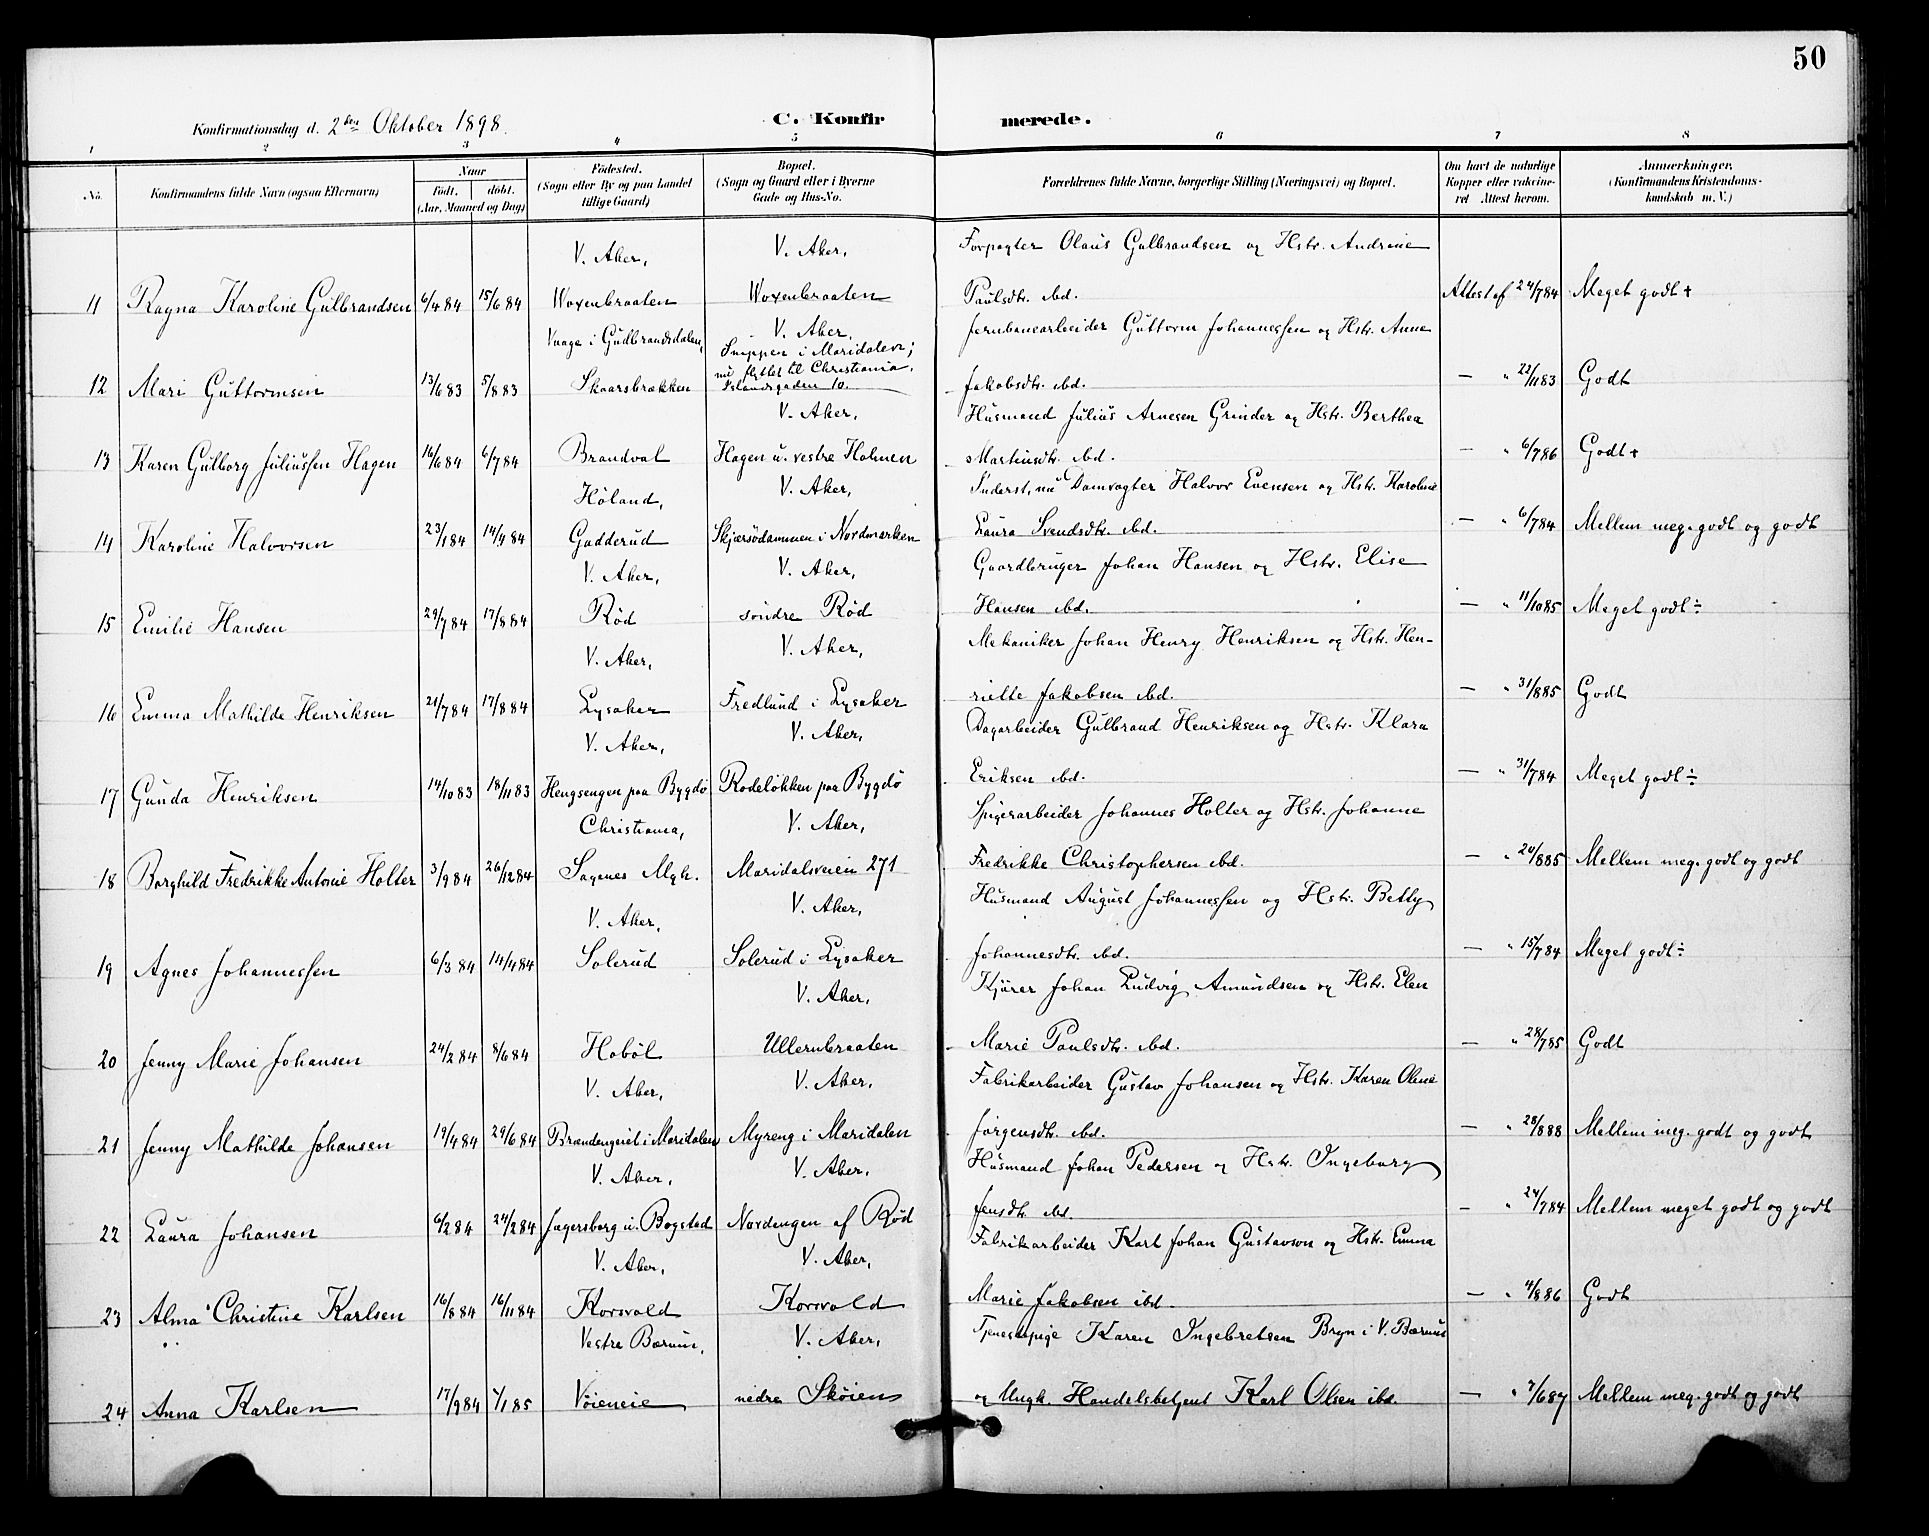 50
Konfirmationsdag d. 2den Oktober 1898.
C. Konfirmerede.
1 2 3 4 5 6 7 8
No. Konfirmandens fulde Navn (ogsaa Efternavn) Naar født. døbt. (Aar, Maaned og Dag) Födested. (Sogn eller By og paa Landet tillige Gaard) Bopæl. (Sogn og Gaard eller i Byerne Gade og Hus-No. Forældrenes fulde Navne, borgerlige Stilling (Næringsvei) og Bopæl. Om havt de naturlige Kopper eller vakcineret Attest herom. Anmærkninger. (Konfirmandens Kristendomskundskab m. V.)
V. Aker, V. Aker, Forpagter Olaus Gulbrandsen og Hstr. Andrine
11 Ragna Karoline Gulbrandsen 6/4 84 15/6 84 Woxenbraaten Woxenbraaten Paulsdtr. ibd. Attest af 24/7 84 Meget godt +
Vaage i Gudbrandsdalen, V. Aker, Jernbanearbeider Guttorm Johannessen og Hstr. Anne
Snippen i Maridalen;
nu flyttet til Christiania,
12 Mari Guttormsen 13/6 83 5/8 83 Skaarsbrækken Islandsgaden 10. Jakobsdtr. ibd. — " 22/11 83 Godt
V. Aker, Husmand Julius Arnesen Grinder og Hstr. Berthea
13 Karen Gulborg Juliussen Hagen 16/6 84 6/7 84 Brandval Hagen u. vestre Holmen Martinsdtr. ibd. — " 6/7 86 Godt +
Höland, V. Aker, Inderst, nu Damvogter Halvor Evensen og Hstr. Karoline
14 Karoline Halvorsen 23/1 84 14/4 84 Gudderud Skjærsödammen i Nordmarken Laura Svendsdtr. ibd. — " 6/7 84 Mellem meg. godt og godt
V. Aker, V. Aker, Gaardbruger Johan Hansen og Hstr. Elise
15 Emilie Hansen 29/7 84 17/8 84 Röd söndre Röd Hansen ibd. — " 11/10 85 Meget godt ÷
V. Aker, V. Aker, Mekaniker Johan Henry Henriksen og Hstr. Hen-
16 Emma Mathilde Henriksen 21/7 84 17/8 84 Lysaker Fredlund i Lysaker riette Jakobsen ibd. — " 31/8 85 Godt
V. Aker, V. Aker, Dagarbeider Gulbrand Henriksen og Hstr. Klara
17 Gunda Henriksen 14/10 83 18/11 83 Hengsengen paa Bygdö Rodelökken paa Bygdö Eriksen ibd. — " 31/7 84 Meget godt ÷
Christiania, V. Aker, Spigerarbeider Johannes Holter og Hstr. Johanne
18 Borghild Fredrikke Antonie Holter 3/9 84 26/12 84 Sagenes Mgh. Maridalsveien 271 Fredrikke Christophersen ibd. — " 20/8 85 Mellem meg. godt og godt
V. Aker, V. Aker, Husmand August Johannessen og Hstr. Betty
19 Agnes Johannessen 6/3 84 14/4 84 Solerud Solerud i Lysaker Johannesdtr. ibd. — " 15/7 84 Meget godt ÷
V. Aker, Kjörer Johan Ludvig Amundsen og Hstr. Elen
20 Jenny Marie Johansen 24/2 84 8/6 84 Haböl Ullernbraaten Marie Paulsdtr. ibd. — " 28/7 85 Godt
V. Aker, V. Aker, Fabrikarbeider Gustav Johansen og Hstr. Karen Oline
21 Jenny Mathilde Johansen 19/4 84 29/6 84 Brændengeiet i Maridalen Myreng i Maridalen Jörgensdtr. ibd. — " 28/8 88 Mellem meg. godt og godt
V. Aker, V. Aker, Husmand Johan Pedersen og Hstr. Ingeborg
22 Laura Johansen 6/2 84 24/2 84 Jægersborg u. Bogstad Nordengen af Röd Jensdtr. ibd. — " 24/7 84 Mellem meget godt og godt
V. Aker, V. Aker, Fabrikarbeider Karl Johan Gustavson og Hstr. Emma
23 Alma Christine Karlsen 16/8 84 16/11 84 Korsvold Korsvold Marie Jakobsen ibd. — " 4/8 86 Godt
Vestre Bærum, V. Aker, Tjenestepige Karen Ingebretsen Bryn i V. Bærum
24 Anna Karlsen 17/9 84 1/1 85 Vöieneie nedre Sköien og Ungk. Handelsbetjent Karl Olsen ibd. — " 7/6 87 Mellem meg. godt og godt